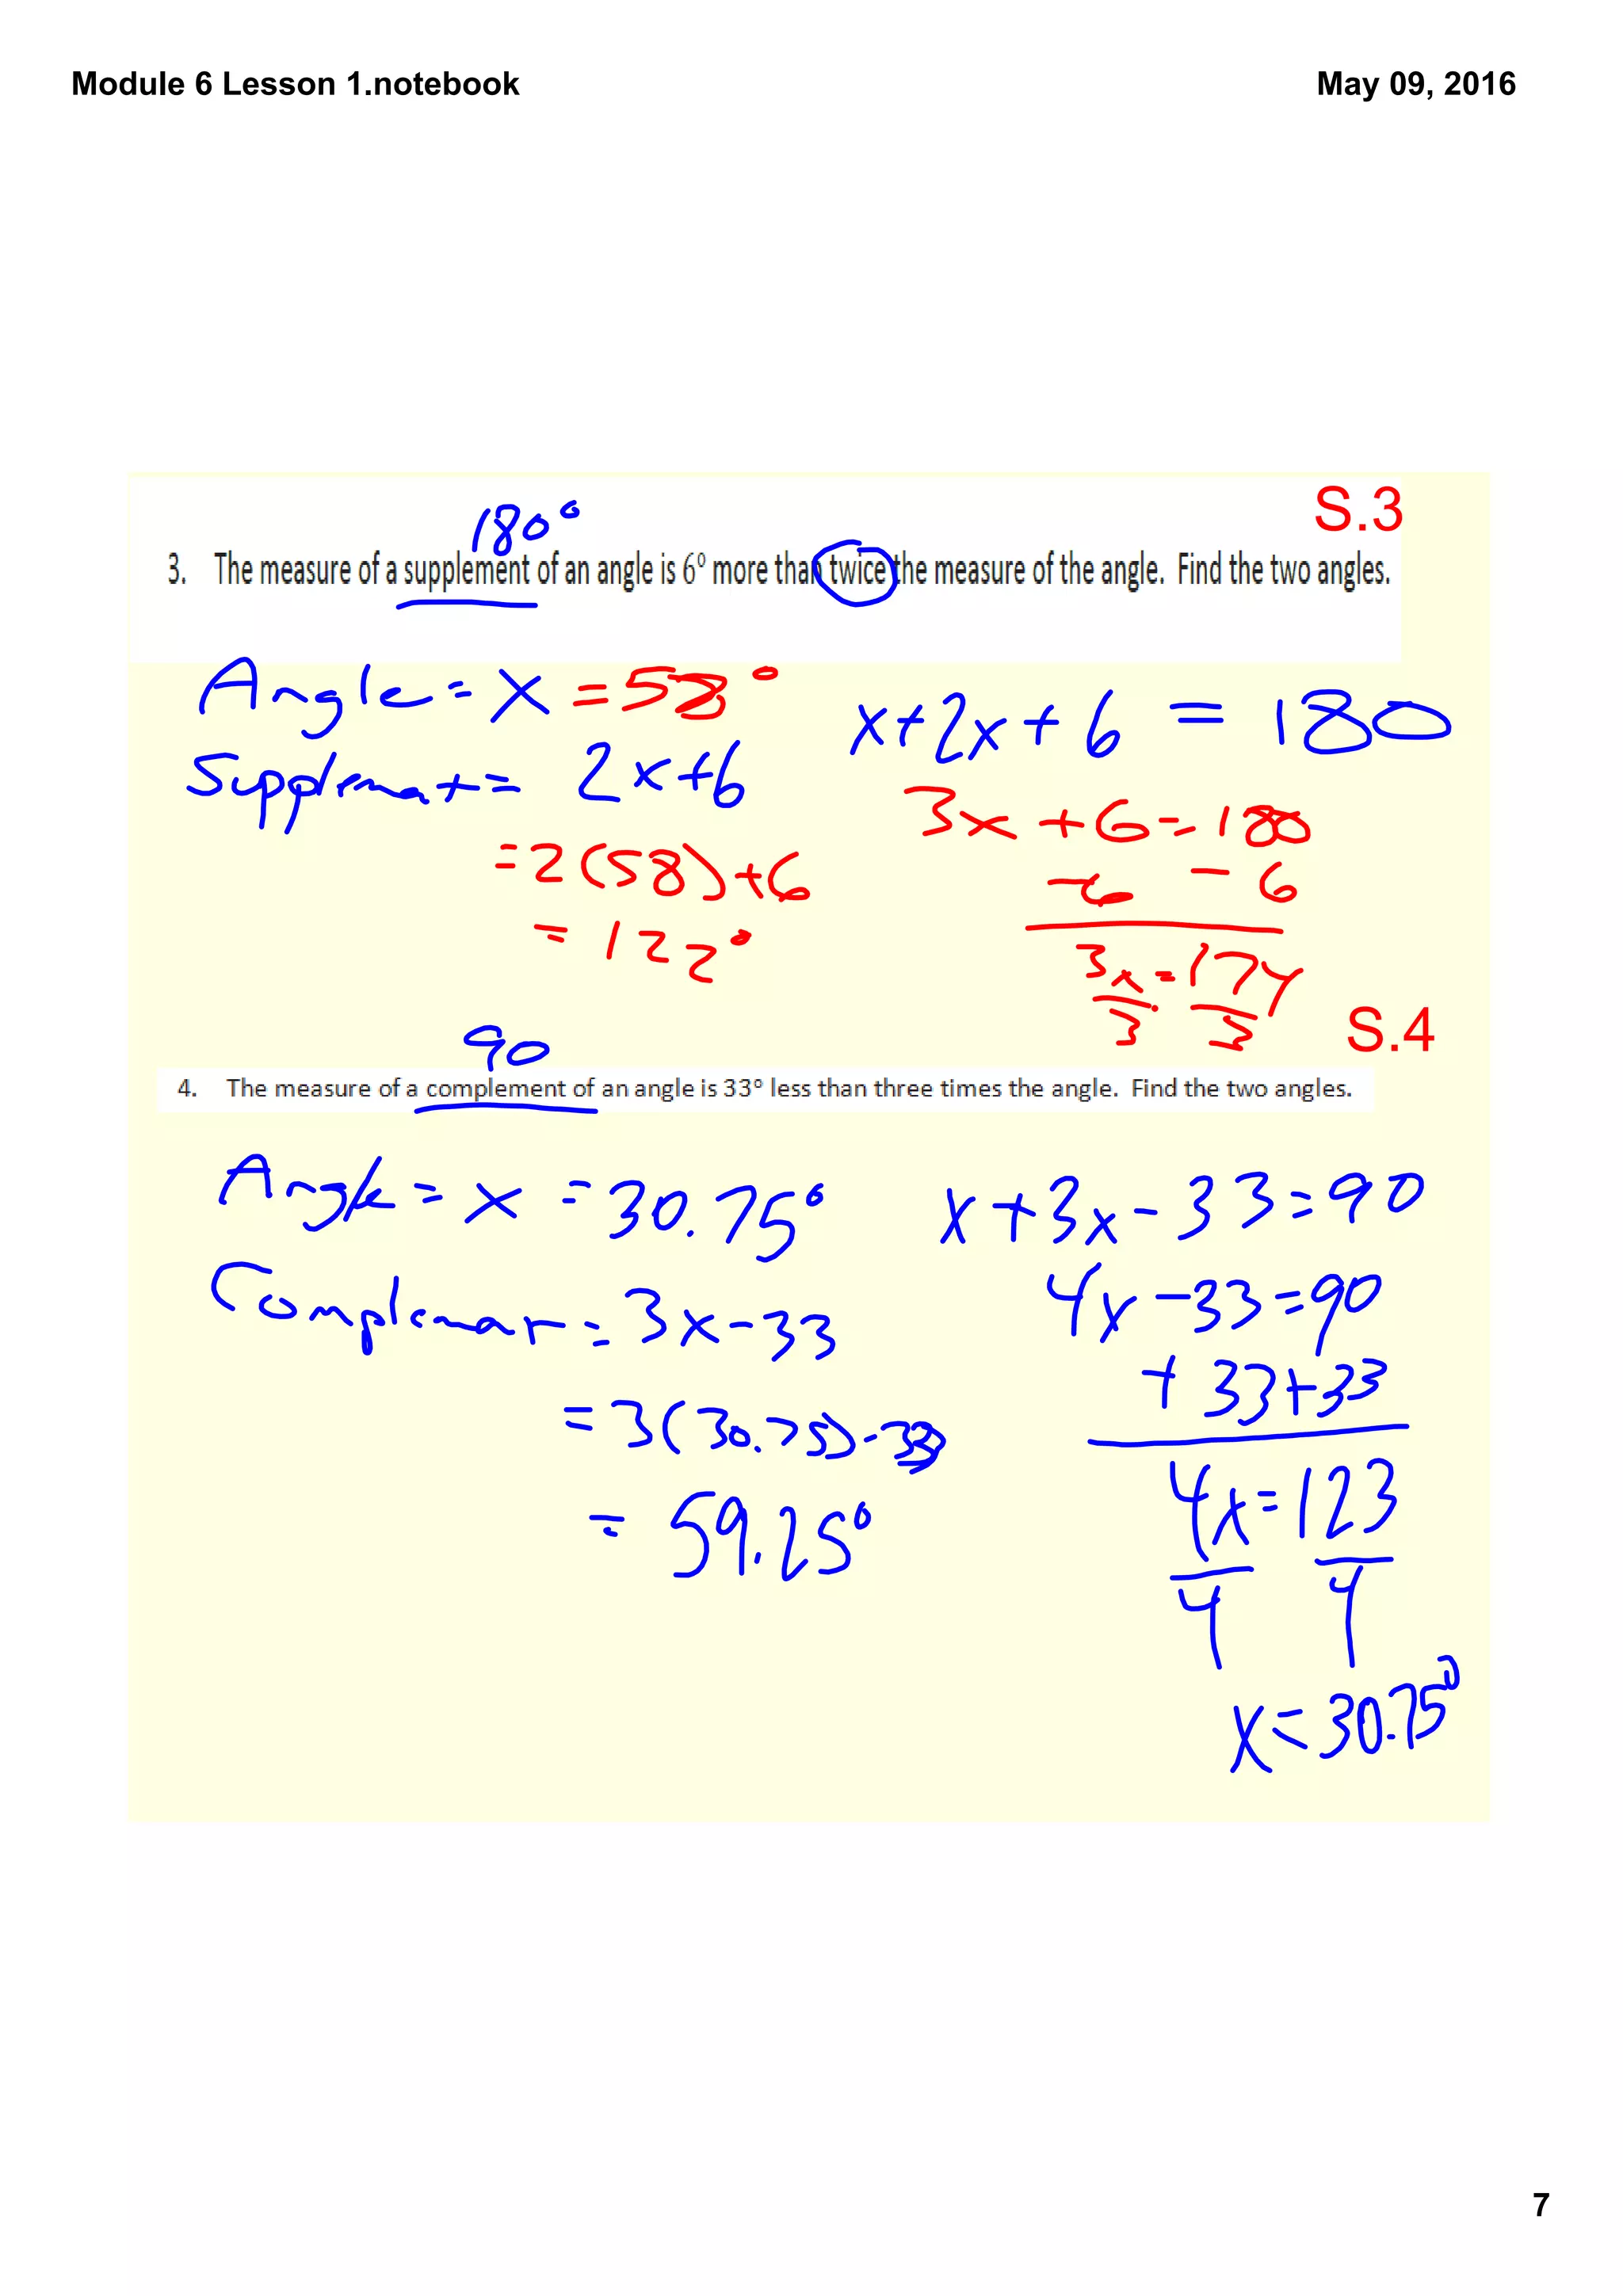 Module 6 Lesson 1.notebook
May 09, 2016
S.3
180°
3. The measure of a supplement of an angle is 6° more than twice the measure of the angle. Find the two angles.
Angle = x = 58°
x+2x+6 = 180
Supplement = 2x+6
3x+6=180
= 2(58)+6
-6 - 6
= 122°
3x = 174
3 3
S.4
90
4. The measure of a complement of an angle is 33° less than three times the angle. Find the two angles.
Angle = x = 30.75°
x+3x-33=90
Complement = 3x-33
4x-33=90
+33+33
= 3(30.75)-33
4x=123
= 59.25°
4 4
x=30.75°
7